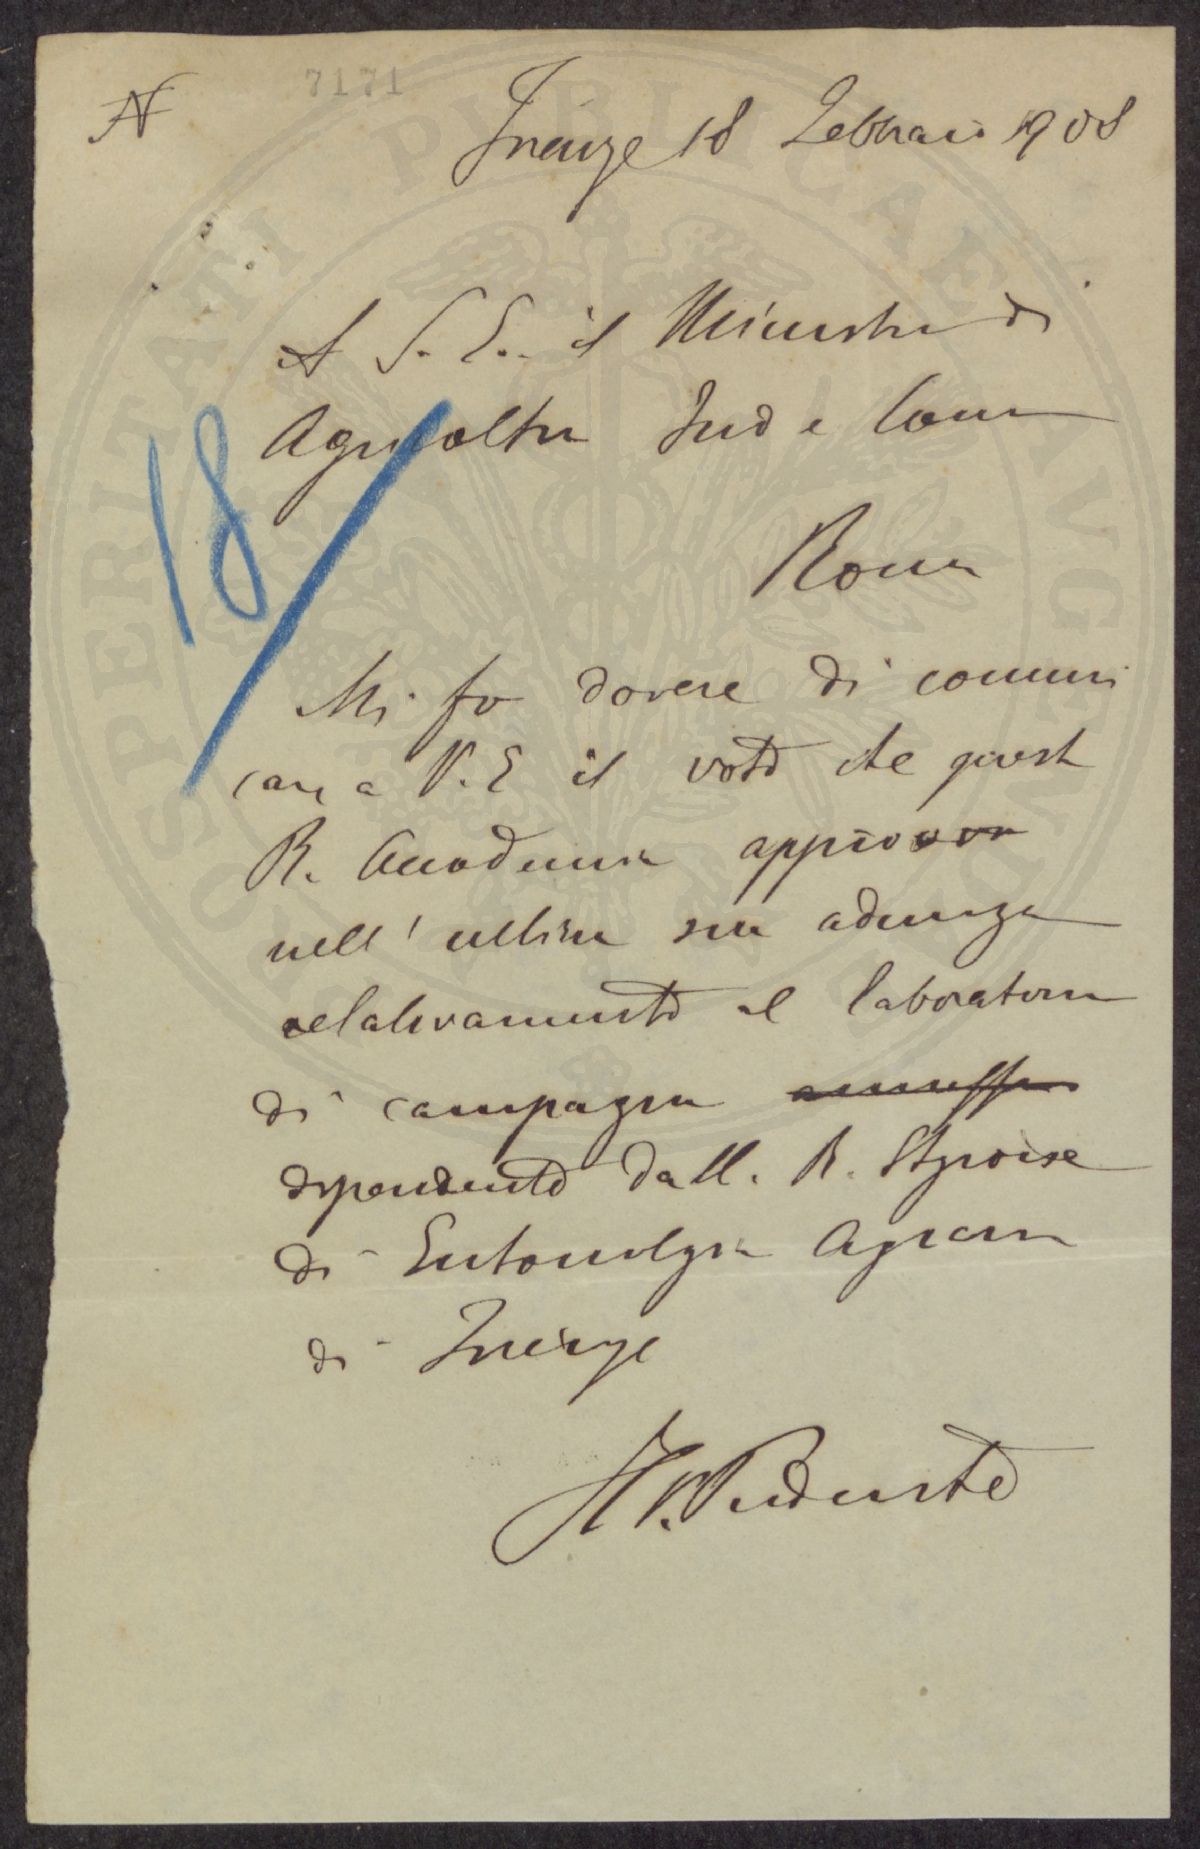 N 7171
Firenze 18 Febbraio 1908
A S. E. il Ministro di
Agricoltura Ind e Comm
Roma
18
Mi fo dovere di comuni
care a V. E il voto che questa
R. Accademia approvava
nell' ultima sua adunanza
relativamente al laboratorio
di campagna annesso
dipendente dall. R. Stazione
di Entomologia Agraria
di Firenze
Il V. Presidente
PROSPERITATI PVBLICAE AVGENDAE